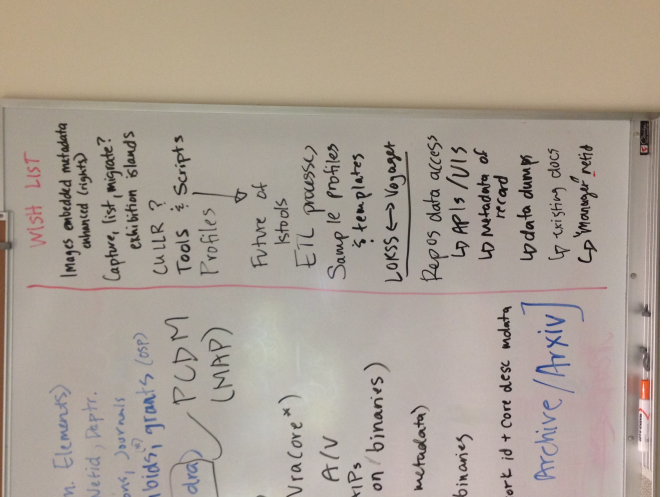 WISH LIST
Images embedded metadata
enhanced (rights)
Capture, list, migrate?
exhibition islands
CULLR ?
Tools & Scripts
Profiles
Future of
lstools
ETL processes
Sample profiles
& templates
LOKSS ↔ Voyager
Repos data access
↳ APIs / UIs
↳ Metadata of
record
↳ data dumps
↳ existing docs
↳ "Manager" netid
n. Elements)
Netid, Deptr.
ons, journals
bids, grants (OSP)
dra)
PCDM
(MAP)
Vracore*)
A/V
IPs
on/binaries)
metadata)
binaries
ork id + core desc mdata
Archive/Arxiv]